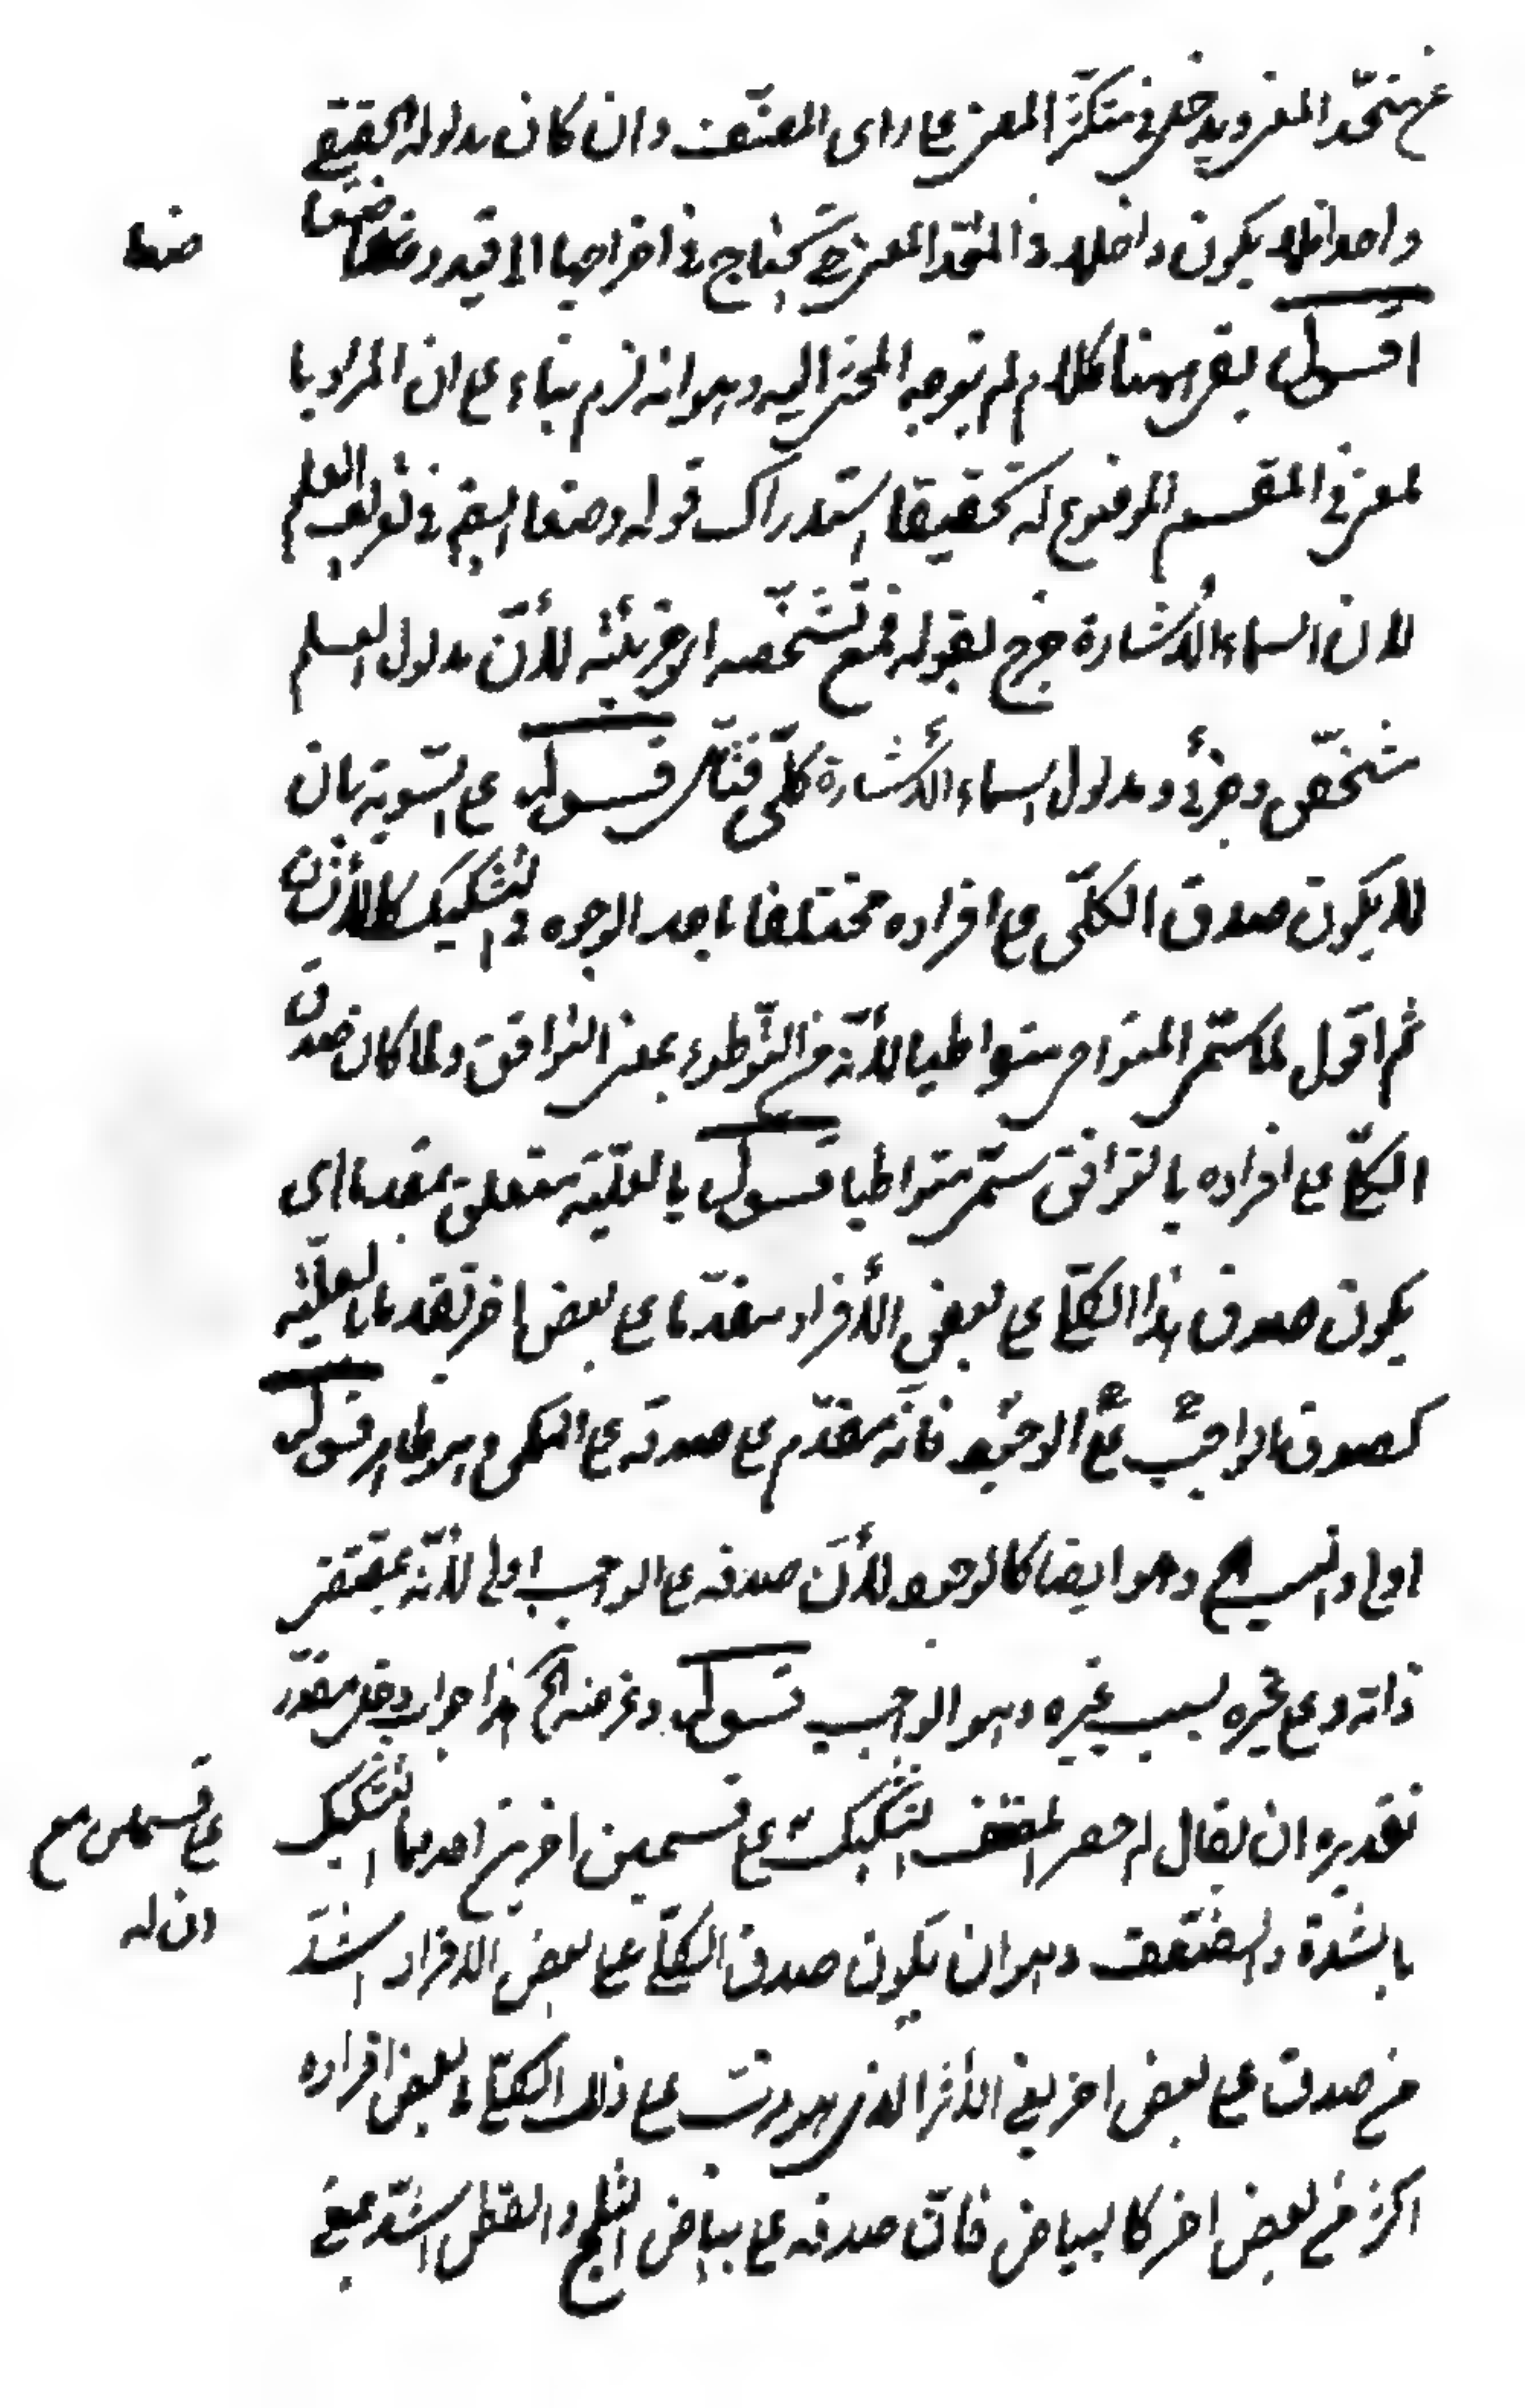 عن متحد المعنى ويدخل في متكثر المعنى على رأى المصنف وان كان مدلوله الحقيقى
واحدا فلا يكون داخلا في المتحد المعنى حتى يحتاج في اخراجها الى قيد وضعا
وضعا
اقول بقى ههنا كلام لم يتوجه المحشى اليه وهو انه لزم بناء على ان المراد با
لمعنى في المقسم الموضوع له تحقيقا استدراك قوله وضعا ايضا في تعريف العلم
لان اسماء الأشارة خرج بقوله فمع تشخصه اى جزئيته لأن مدلول العلم
مشخص وجزئى ومدلول اسماء الأشارة كلى فتأمل قوله على السوية بان
لا يكون صدق الكلى على افراده مختلفا باحد الوجوه في التشكيك كالأنسان
ثم اقول لما سمى المتواطى متواطيا لأنه من التوطوء بمعنى التوافق ولما كان صدق
الكلى على افراده بالتوافق سمى متواطيا قوله بالعلية متعلق بمقدما اى
يكون صدق هذا الكلى على بعض الأفراد مقدما على بعض اخر تقدما بالعلية
كصدق الوجود على الواجب فانه مقدم على صدقه على الممكن وهو ظاهر قوله
اولى وانسب الخ وهو ايضا كالوجود لأن صدقه على الواجب اولى لأنه بمقتضى
ذاته وعلى غيره بسبب غيره وهو الواجب قوله وغرضه الخ هذا جواب دخل مقدر
تقديره ان يقال لم حصر المصنف التشكيك على قسمين اخرين احدهما التشكيك
على قسمين مع
ان له
بالشدة والضعف وهو ان يكون صدق الكلى على بعض الأفراد اشد
من صدقه على بعض اخر يعنى الأثر الذى هو مرتب على ذلك الكلى في بعض افراده
اكثر من بعض اخر كالبياض فان صدقه على بياض الثلج والقطن اشد بمعنى